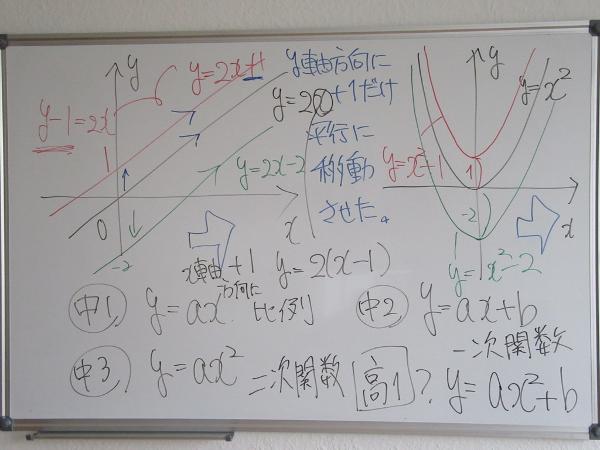 y
y=2x+1
y-1=2x
1
y=2x
y=2x-2
0
-2
x
y軸方向に
+1だけ
平行に
移動
させた。
x軸方向に+1 y=2(x-1)
y
y=x²
y=x²-1
1
-2
x
y=x²-2
中1 y=ax 比例
中2 y=ax+b
一次関数
中3 y=ax² 二次関数
高1? y=ax²+b